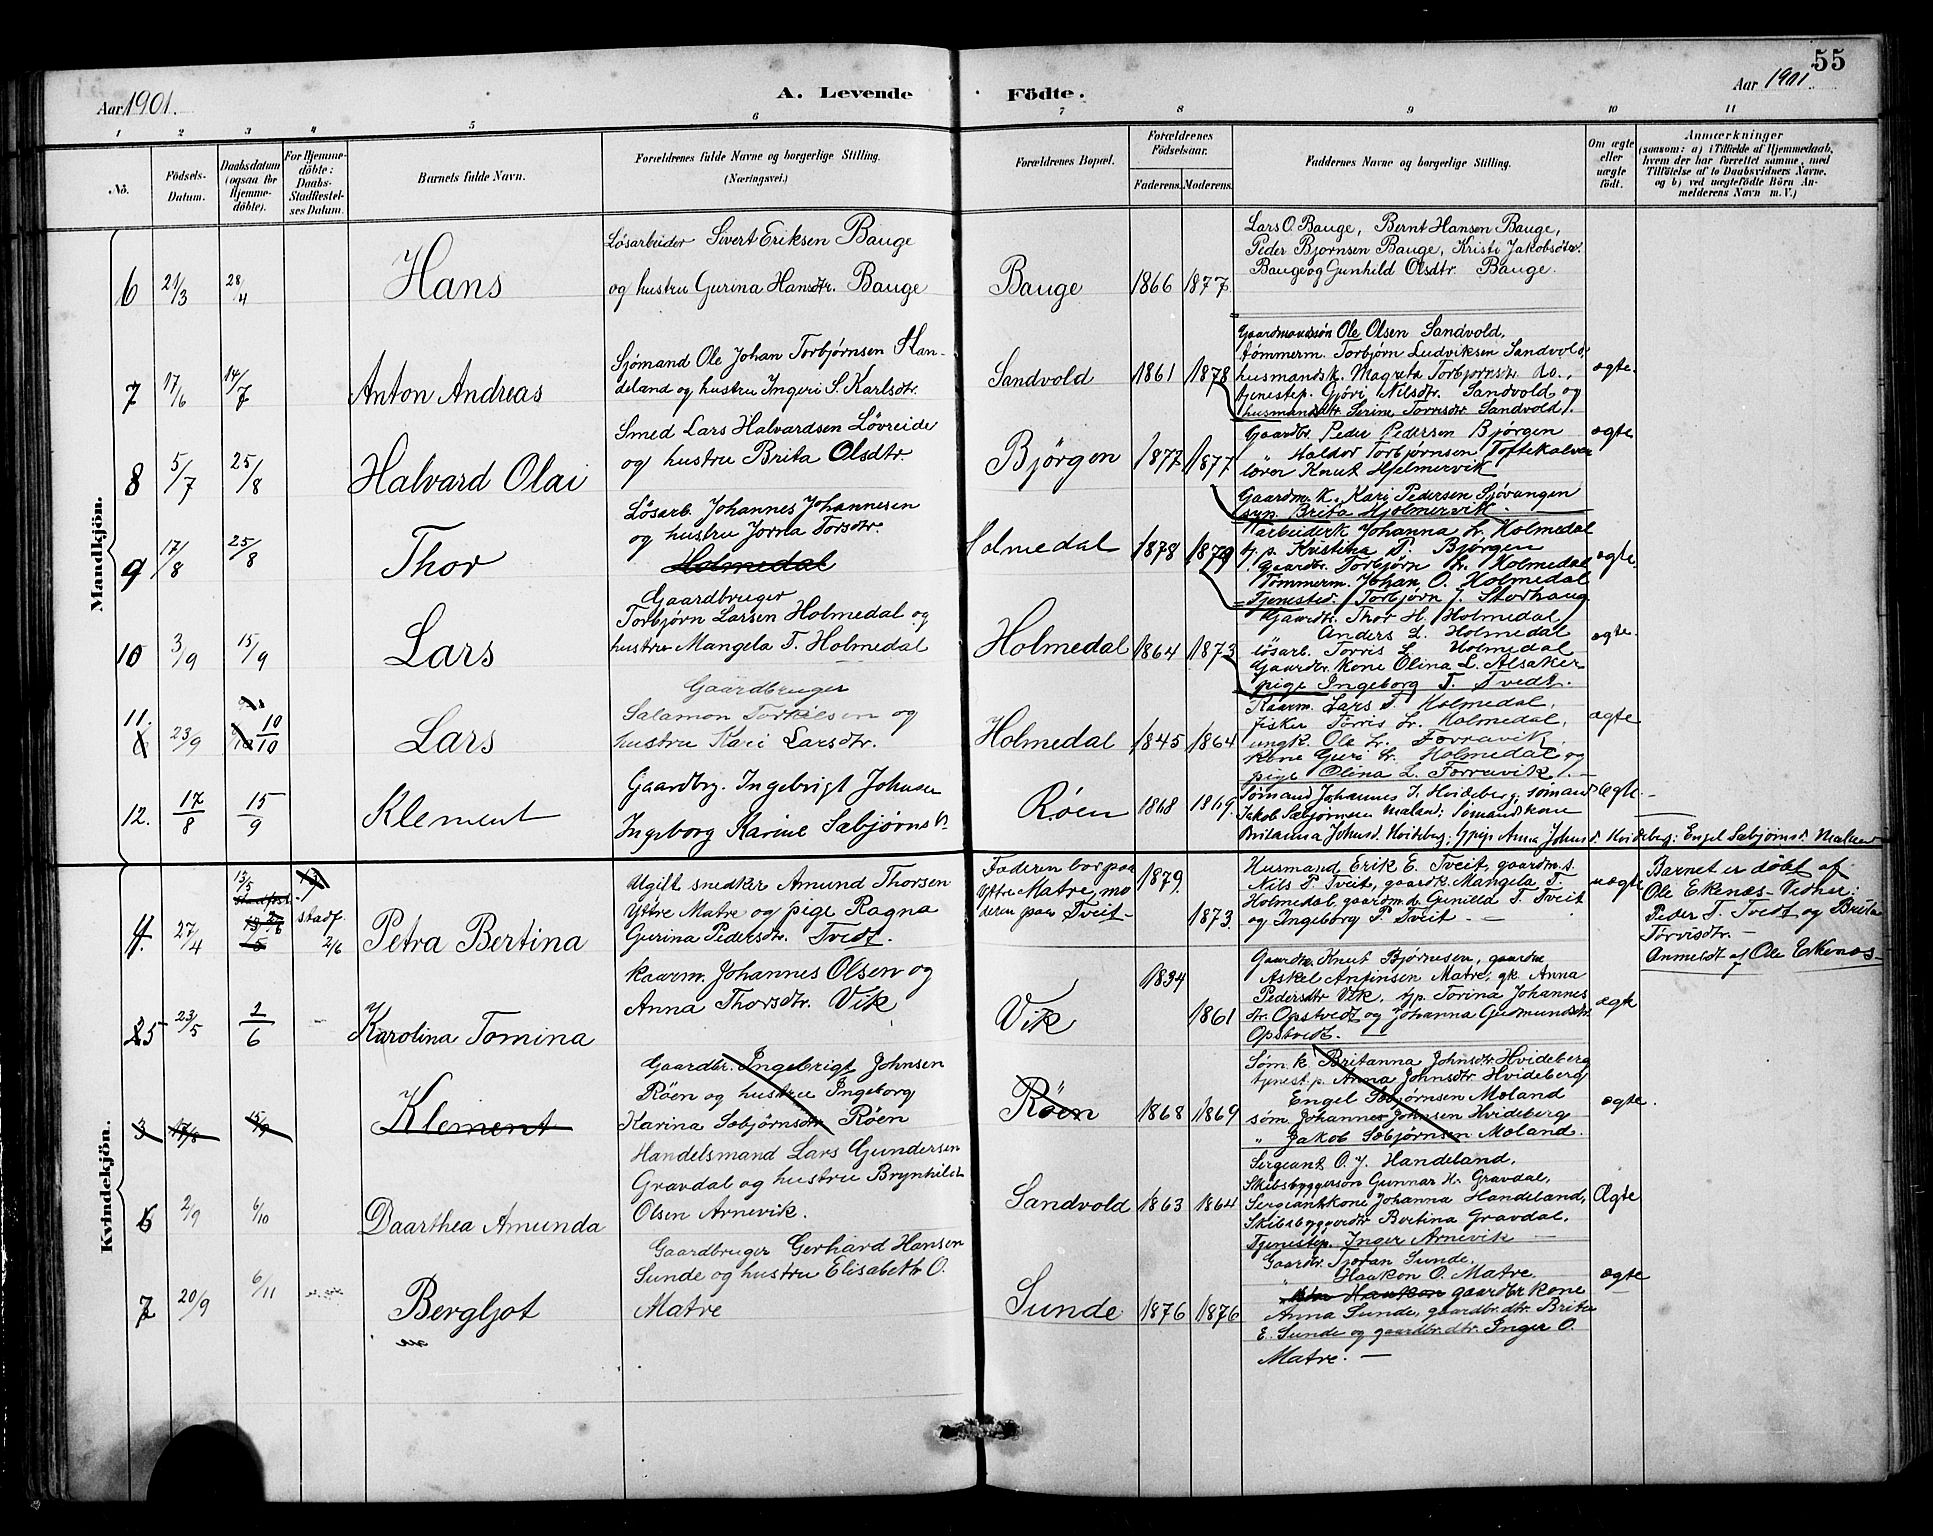 55
Aar 1901.
A. Levende Födte.
Aar 1901.
1 2 3 4 5 6 7 8 9 10 11
No.
Födsels-Datum.
Daabsdatum (ogsaa for Hjemme-döbte).
For Hjemme-döbte: Daabs-Stadfæstel-ses Datum.
Barnets fulde Navn.
Forældrenes fulde Navne og borgerlige Stilling. (Næringsvei.)
Forældrenes Bopæl.
Forældrenes Födselsaar.
Faderens. Moderens.
Faddernes Navne og borgerlige Stilling.
Om ægte eller uægte født.
Anmærkninger
(saasom: a) i Tilfælde af Hjemmedaab, hvem der har forrettet samme, med Tilföielse af to Daabsvidners Navne, og b) ved uægtefödte Börn An-melderens Navn m. V.)
Mandkjön.
6 21/3 28/4 Hans
Løsarbeider Sivert Eriksen Bauge
og hustru Gurina Hansdtr. Bauge
Bauge 1866 1877
Lars O. Bauge, Bernt Hansen Bauge,
Peder Bjørnsen Bauge, Kristi Jakobsdtr.
Bauge og Gunhild Olsdtr. Bauge.
7 17/6 14/7 Anton Andreas
Sjømand Ole Johan Torbjørnsen Han-
deland og hustru Ingeri S. Karlsdtr.
Sandvold 1861 1878
Gaardmandssøn Ole Olsen Sandvold,
tømmerm. Torbjørn Ludviksen Sandvold
husmandsk. Magreta Torbjørnsdtr. do.,
tjenestep. Gjøri Nilsdtr. Sandvold og
husmandsdtr. Serine Tormsdtr Sandvold.
ægte
8 5/7 25/8 Halvard Olai
Smed Lars Halvardsen Løvreide
og hustru Brita Olsdtr.
Bjørgen 1877 1877
Gaardbr. Peder Pedersen Bjørgen
" Haldor Torbjørnsen Toftekalven
lærer Knut Hjelmervik
Gaardm. k. Kari Pedersen Sjøvangen
syp. Brita Hjelmervik.
ægte
9 17/8 25/8 Thor
Løsarb. Johannes Johannesen
og hustru Jorna Torsdtr.
Holmedal
Holmedal 1878 1879
arbeiderk Johanna L. Holmedal
tj. p. Kristina P. Bjørgen
Gaardbr. Torbjørn L. Holmedal
Tømmerm. Johan O. Holmedal
Tjenested. Torbjørn J. Storhaug
ægte.
10 3/9 15/9 Lars
Gaardbruger
Torbjørn Larsen Holmedal og
hustru Mangela T. Holmedal
Holmedal 1864 1873
Gaardbr. Thor H. Holmedal
Anders L. Holmedal
løsarb. Torris L. Holmedal
Gaardbr. kone Olina L. Alsaker
pige Ingeborg T. Tvedt.
ægte.
11. 23/9 10/10 Lars
Gaardbruger
Salamon Torkilsen og
hustru Kari Larsdtr.
Holmedal 1845 1864
Kaarm. Lars T. Holmedal,
fisker Torris L. Holmedal,
ungk. Ole L. Forravik
kone Guri L. Holmedal og
pige Olina L. Forravik.
ægte
12. 17/8 15/9 Klement
Gaardbrg. Ingebrigt Johnsen
Ingeborg Karine Sæbjørnsdt
Røen 1868 1869.
Sømand Johannes J. Hvideberg, sømand
Jakob Sæbjørnsen Maland; Sømandskone
Britanna Johnsd. Hvideberg; pige Anna Johnsd. Hvideberg; Engel Sæbjørnsd. Maland
Ægte.
Kvindekjön.
4. 27/4 13/5 stadf. 2/6 Petra Bertina
Ugift snedker Amund Thorsen
Yttre Matre og pige Ragna
Gurina Pedersdtr. Tvedt.
Faderen bor paa
Yttre Matre, mo-
deren paa Tveit
1879. 1873.
Husmand Erik E. Tveit, gaardm. s.
Nils P. Tveit, gaardk. Mangela T.
Holmedal, gaardm. d. Gunilld T. Tveit
og Ingeborg P. Tveit
uægte
Barnet er døbt af
Ole Ekenæs - Vidner:
Peder T. Tvedt og Brita
Torvisdtr. -
Anmeldt af Ole Ekenæs -
5 23/5 2/6 Karolina Tomina
kaarm. Johannes Olsen og
Anna Thorsdtr. Vik
Vik 1834 1861
Gaardbr. Knut Bjørnesen, gaardm
Askel Anfinsen Matre, gk. Anna
Pedersdtr Vik, tjp. Torina Johannes
dtr. Opstvedt og Johanna Gudmundsdtr.
Opstvedt.
ægte
3 17/8 15/9 Klement
Gaardbr. Ingebrigt Johnsen
Røen og hustru Ingeborg
Karina Sæbjørnsdtr Røen
Røen 1868 1869
Søm. k. Britanna Johnsdtr Hvideberg
tjenest. p. Anna Johnsdtr Hvideberg
Engel Sæbjørnsen Moland
søm Johannes Johnsen Hvideberg
" Jakob Sæbjørnsen Moland.
ægte.
6 2/9 6/10 Daarthea Amunda
Handelsmand Lars Gundersen
Gravdal og hustru Brynhild
Olsen Arnevik.
Sandvold 1863 1864
Sergeant O. J. Handeland,
Skibsbyggersøn Gunnar H. Gravdal,
Sergeantkone Johanna Handeland,
Skibsbyggerdtr Bertina Gravdal,
Tjenestep. Inger Arnevik
Ægte
7 20/9 6/11 Bergljot
Gaardbruger Gerhard Hansen
Sunde og hustru Elisabeth O.
Matre
Sunde 1876 1876
Gaardbr. Tjoran Sunde.
" Haakon O. Matre.
gaardbr kone
Anna Sunde, gaardbr. dtr. Brita
E. Sunde og gaardbr. dtr. Inger O.
Matre. -
ægte